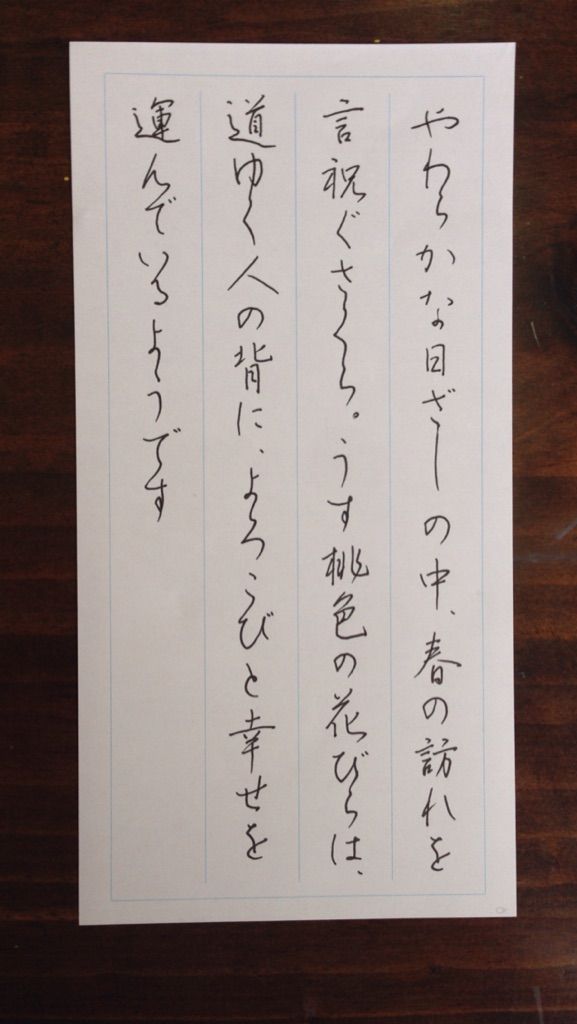 やわらかな日ざしの中、春の訪れを
言祝ぐさくら。うす桃色の花びらは、
道ゆく人の背に、よろこびと幸せを
運んでいるようです